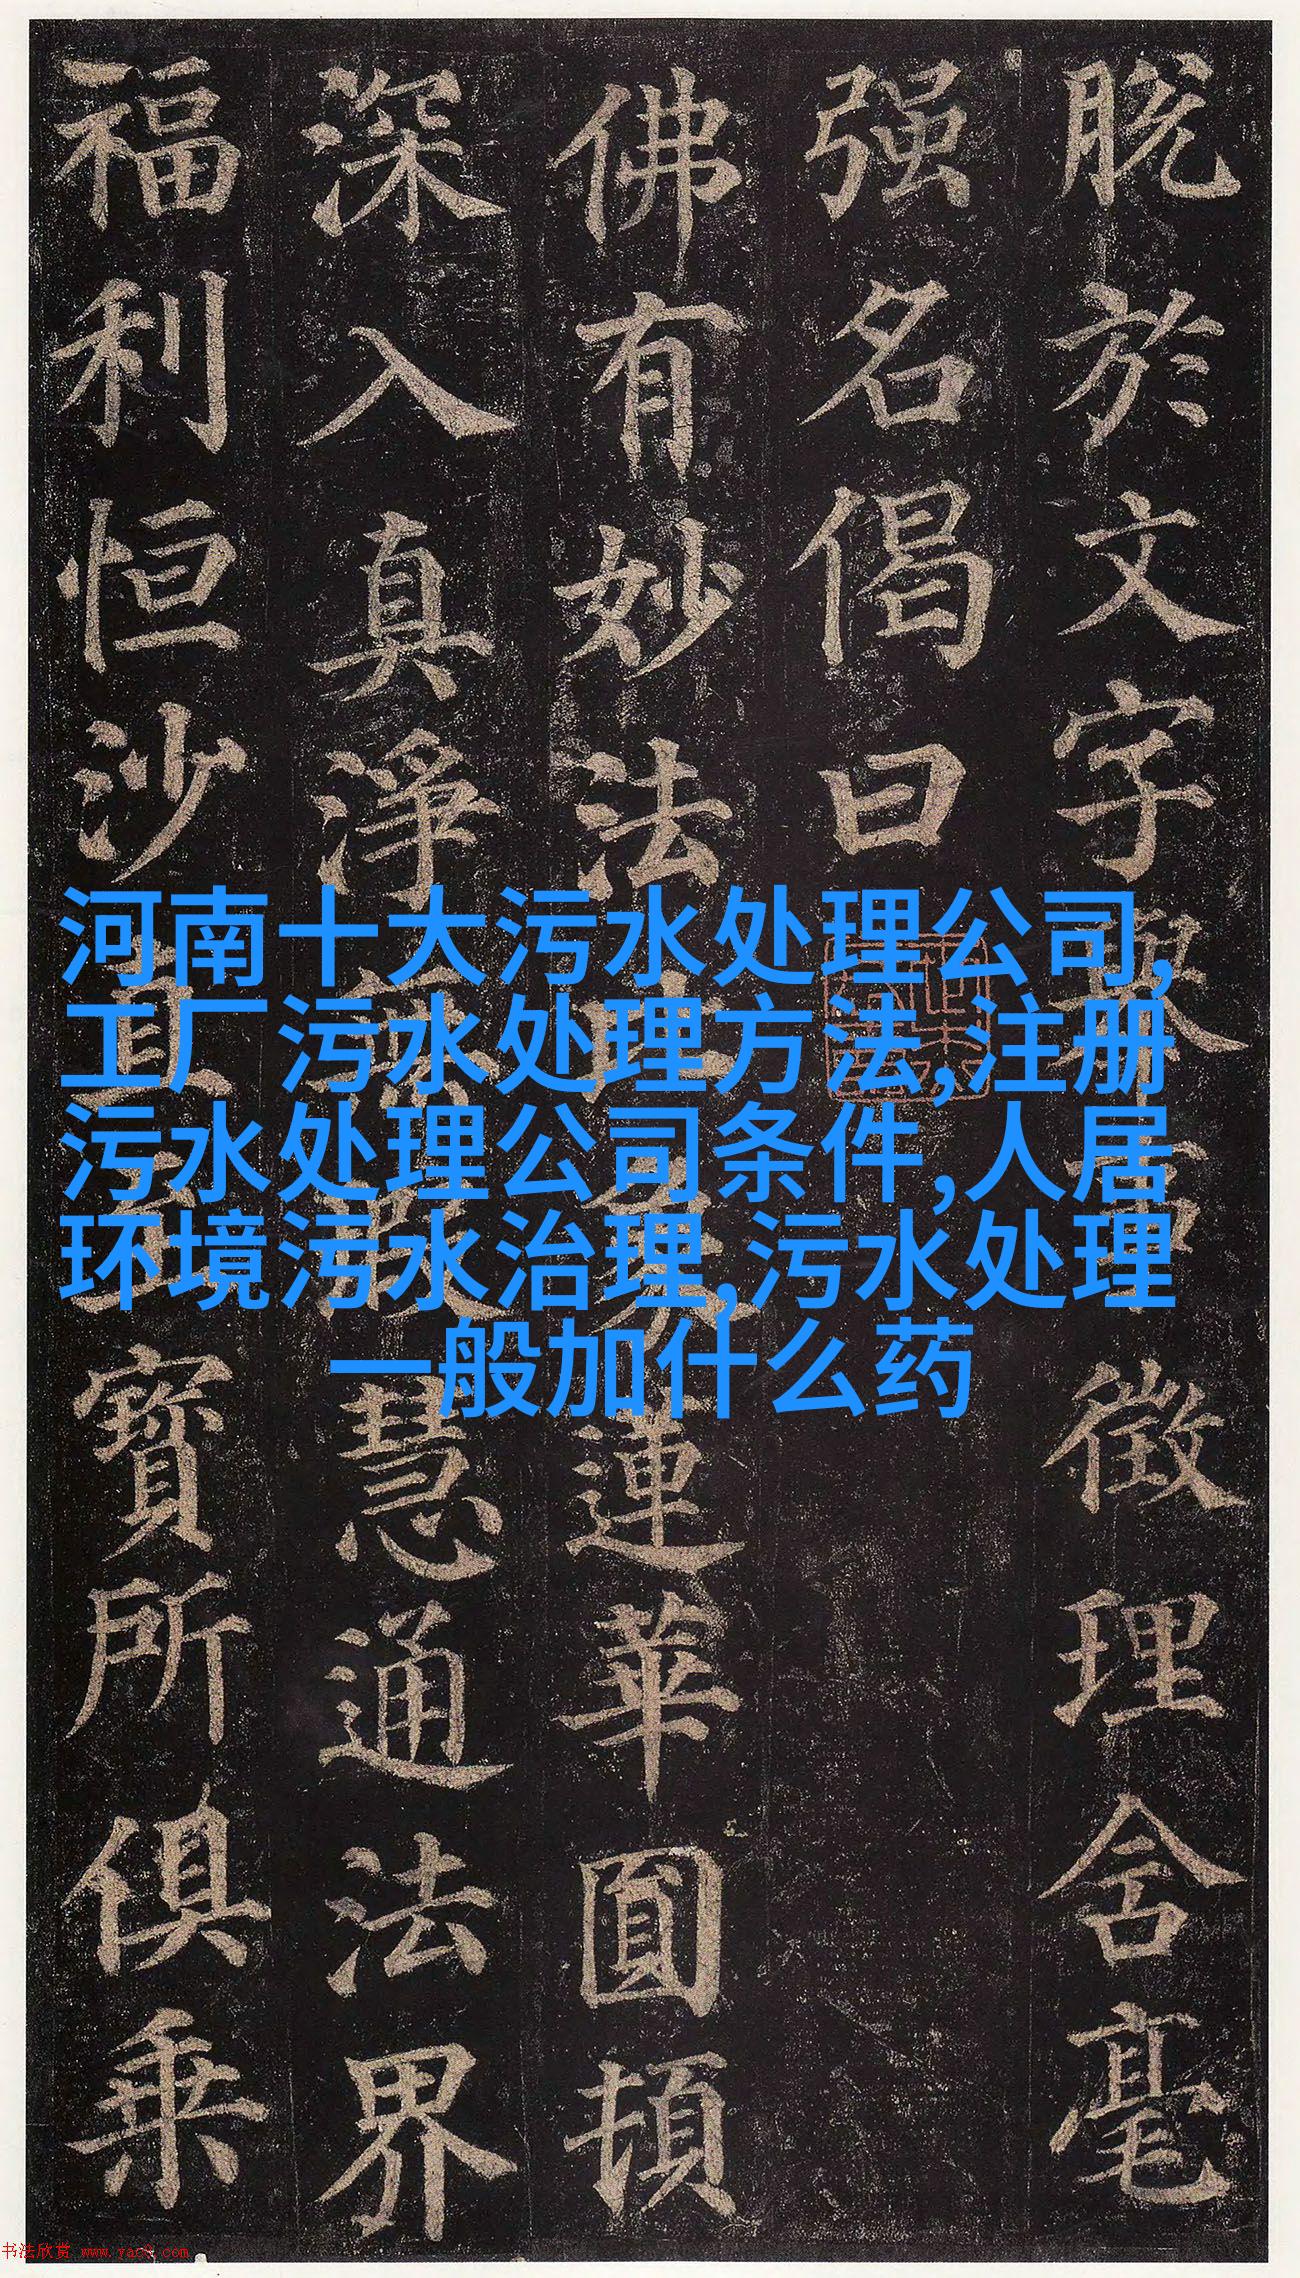 脱於文字舉事徵理含毫
强名偈曰
佛有妙法比象蓮華圓頓
深入真淨無瑕慧通法界
福利恒沙直至寶所俱乘
河南十大污水处理公司,
工厂污水处理方法,注册
污水处理公司条件,人居
环境污水治理,污水处理
一般加什么药
书法欣赏 www.yac8.com